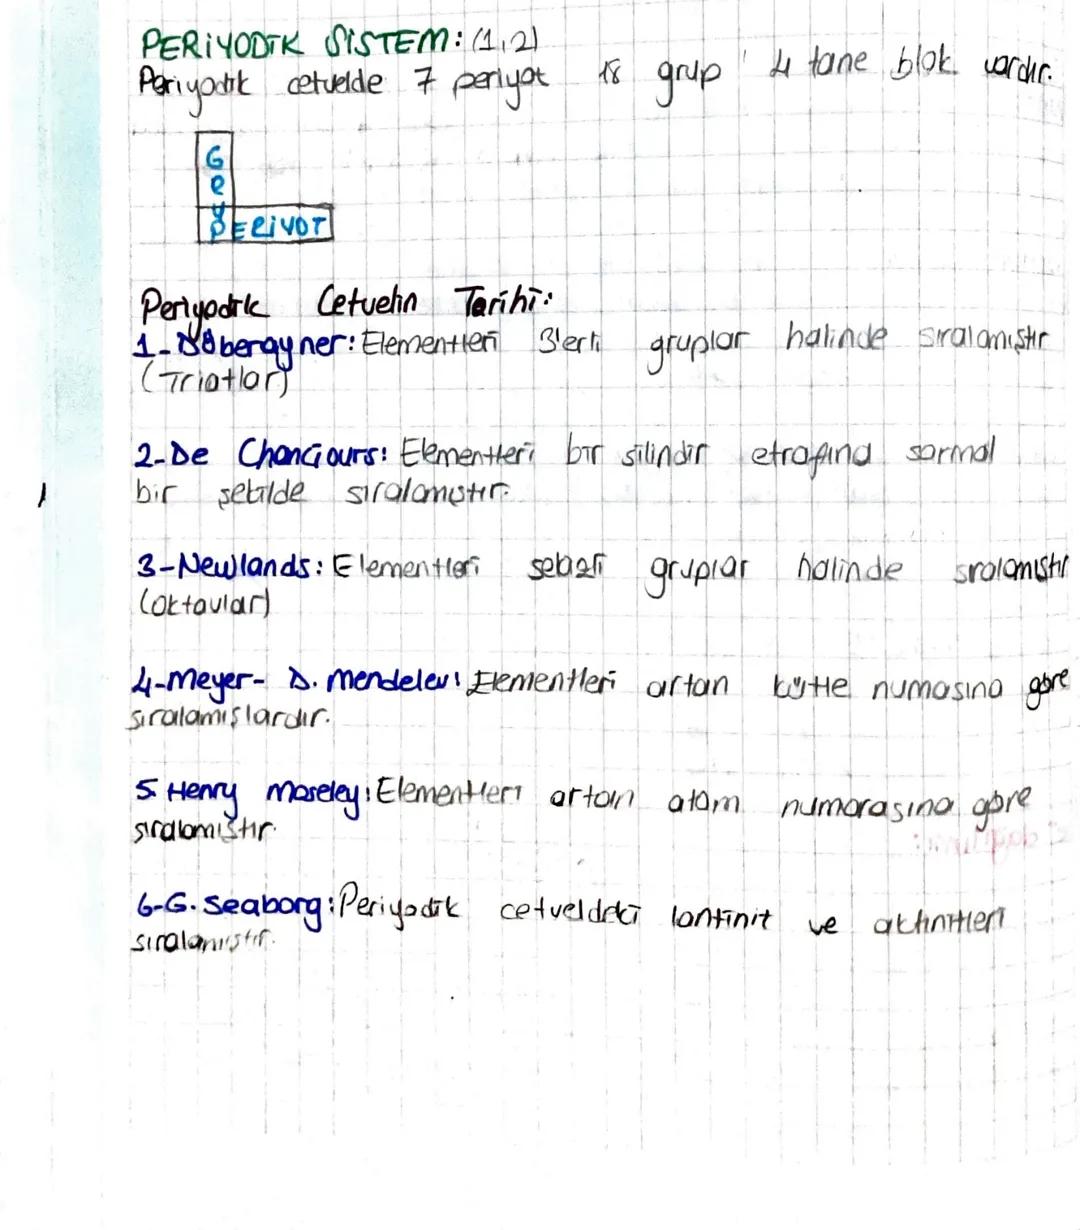 PERİYODİK SİSTEM: (1,2)
Periyodik cetvelde 7 periyot 18 grup 4 tane blok vardır.
G
R
U
PERİYOT
Periyodik Cetvelin Tarihi:
1-Döberayner: Elementleri 3'erli gruplar halinde sıralamıştır
(Triatlar)
2-De Changiours: Elementleri bir silindir etrafına sarmal
bir şekilde sıralamıştır.
3-Newlands: Elementleri sekizli gruplar halinde sıralamıştır
(oktavlar)
4-Meyer- D. mendelev: Elementleri artan kütle numasına göre
sıralamışlardır.
5. Henry Moseley: Elementleri artan atom numarasına göre
sıralamıştır.
6-G. Seaborg: Periyodik cetveldeki lantinit ve aktinitleri
sıralamıştır.